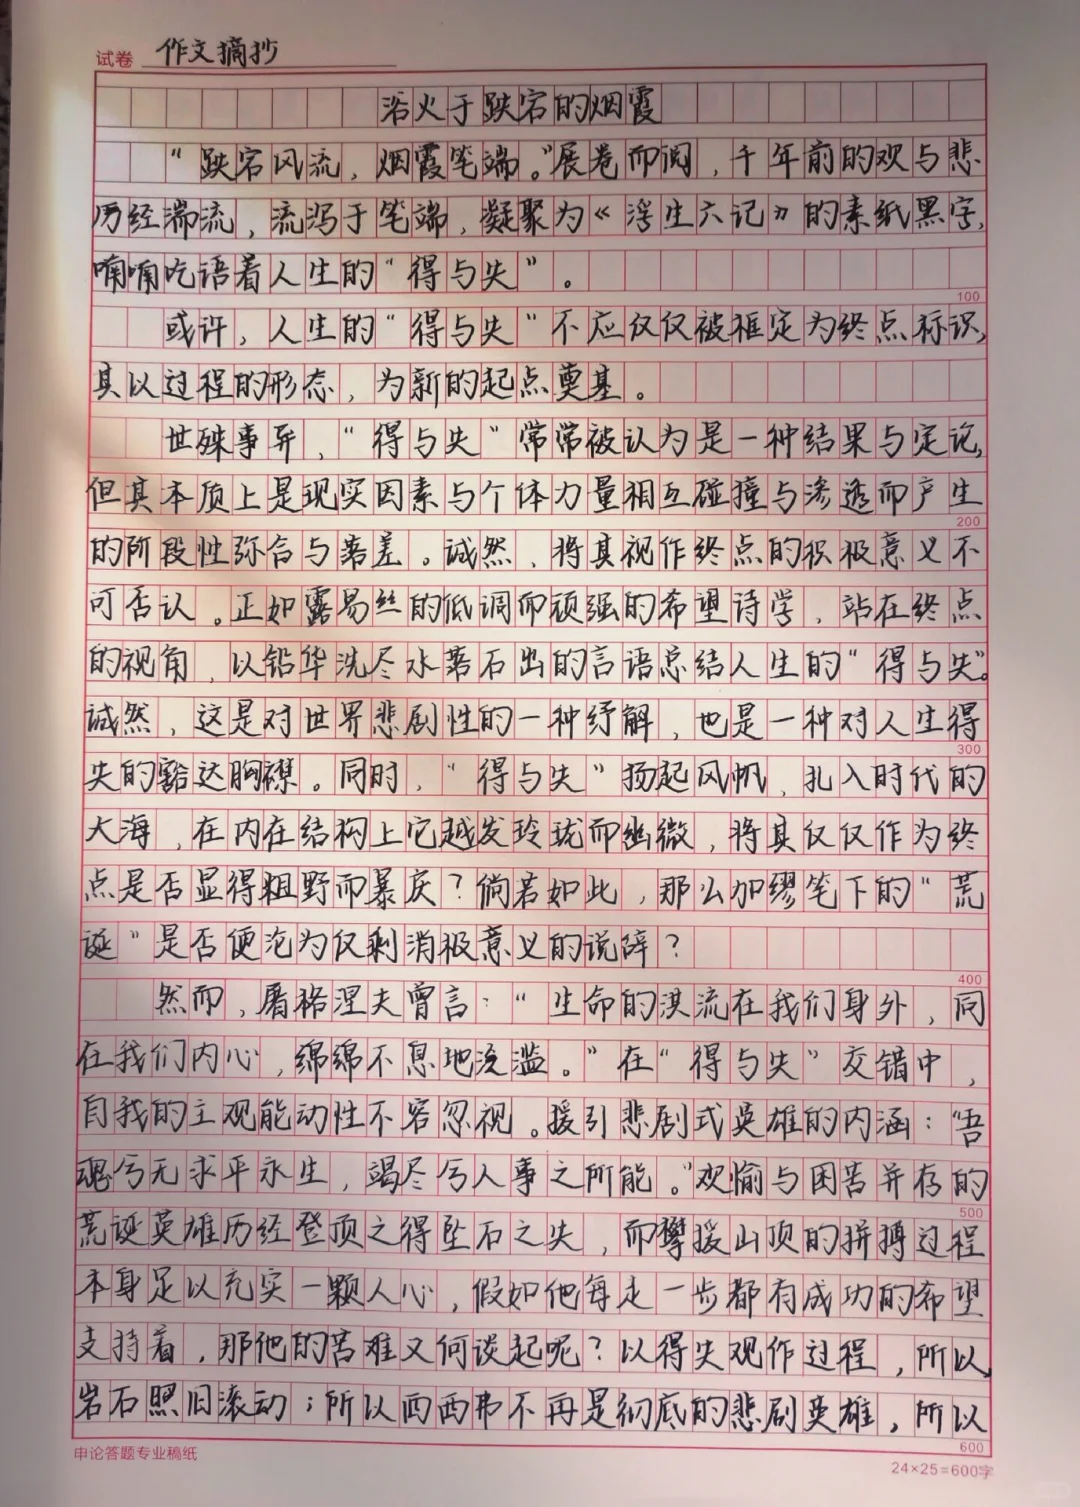 试卷 作文摘抄
浴火于跌宕的烟霞
“跌宕风流，烟霞笔端。”展卷而阅，千年前的欢与悲
历经湍流，流泻于笔端，凝聚为《浮生六记》的素纸黑字，
喃喃吃语着人生的“得与失”。
100
或许，人生的“得与失”不应仅仅被框定为终点标识，
其以过程的形态，为新的起点奠基。
世殊事异，“得与失”常常被认为是一种结果与定论，
但其本质上是现实因素与个体力量相互碰撞与渗透而产生
200
的阶段性弥合与落差。诚然，将其视作终点的积极意义不
可否认。正如露易丝的低调而顽强的希望诗学，站在终点
的视角，以铅华洗尽水落石出的言语总结人生的“得与失”。
诚然，这是对世界悲剧性的一种纾解，也是一种对人生得
300
失的豁达胸襟。同时，“得与失”扬起风帆，扎入时代的
大海，在内在结构上它越发玲珑而幽微，将其仅仅作为终
点是否显得粗野而暴戾？倘若如此，那么加缪笔下的“荒
诞”是否便沦为仅剩消极意义的说辞？
400
然而，屠格涅夫曾言：“生命的洪流在我们身外，同
在我们内心，绵绵不息地泛滥。”在“得与失”交错中，
自我的主观能动性不容忽视。援引悲剧式英雄的内涵：“吾
魂兮无求乎永生，竭尽兮人事之所能。”欢愉与困苦并存的
500
荒诞英雄历经登顶之得坠石之失，而攀援山顶的拼搏过程
本身足以充实一颗人心，假如他每走一步都有成功的希望
支持着，那他的苦难又何谈起呢？以得失观作过程，所以
岩石照旧滚动；所以西西弗不再是彻底的悲剧英雄，所以
600
申论答题专业稿纸
24×25=600字